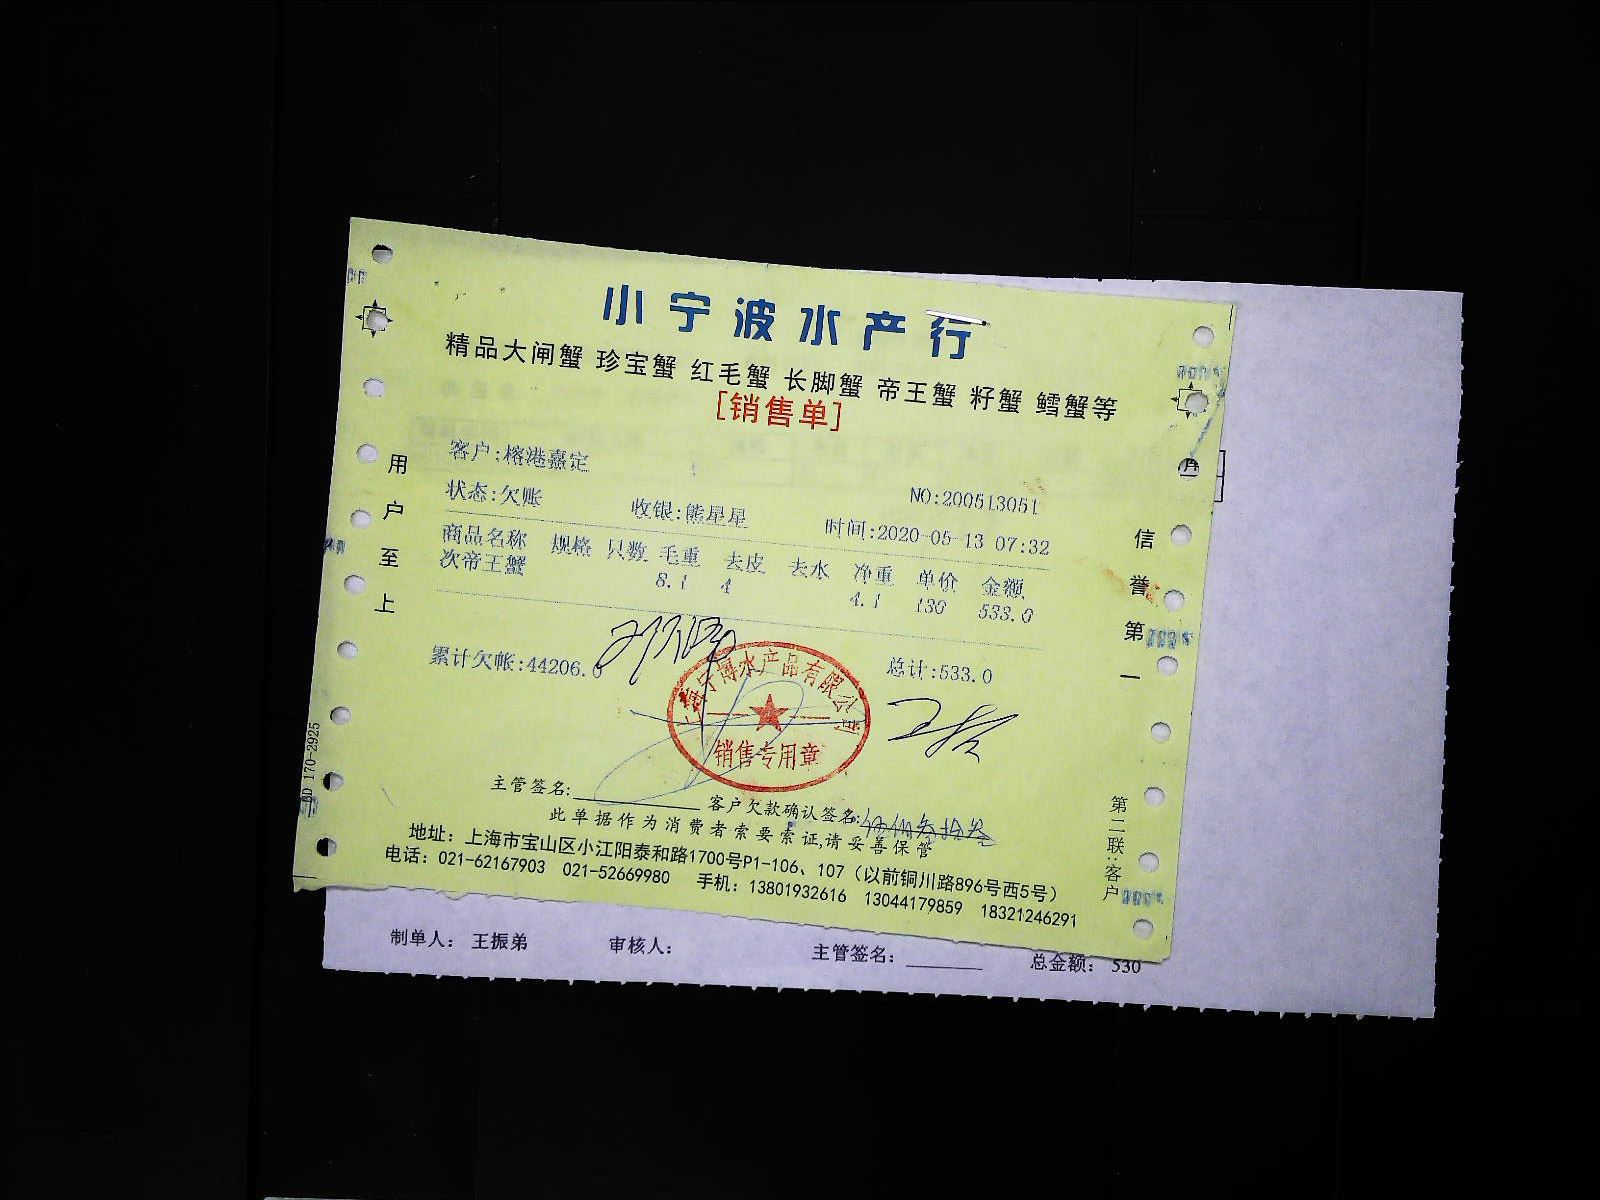 小宁波水产行
精品大闸蟹 珍宝蟹 红毛蟹 长脚蟹 帝王蟹 籽蟹 鳕蟹等
[销售单]
客户:榕港嘉定
NO:200513051
状态:欠账 收银:熊星星 时间:2020-05-13 07:32
商品名称 规格 只数 毛重 去皮 去水 净重 单价 金额
次帝王蟹 8.1 4 4.1 130 533.0
累计欠帐:44206.0 总计:533.0
上海宁博水产品有限公司
销售专用章
主管签名: 客户欠款确认签名:
此单据作为消费者索要索证,请妥善保管
地址: 上海市宝山区小江阳泰和路1700号P1-106、107(以前铜川路896号西5号)
电话: 021-62167903 021-52669980 手机: 13801932616 13044179859 18321246291
用户至上
信誉第一
第二联:客户
BD 170-2925
制单人: 王振弟 审核人: 主管签名: 总金额: 530